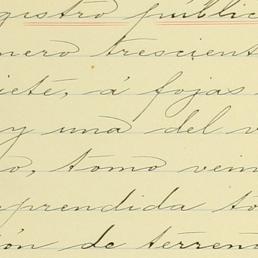 gistro públic
nero trescient
iete, á fojas
y una del v
o, tomo vein
prendida to
ión de terreno